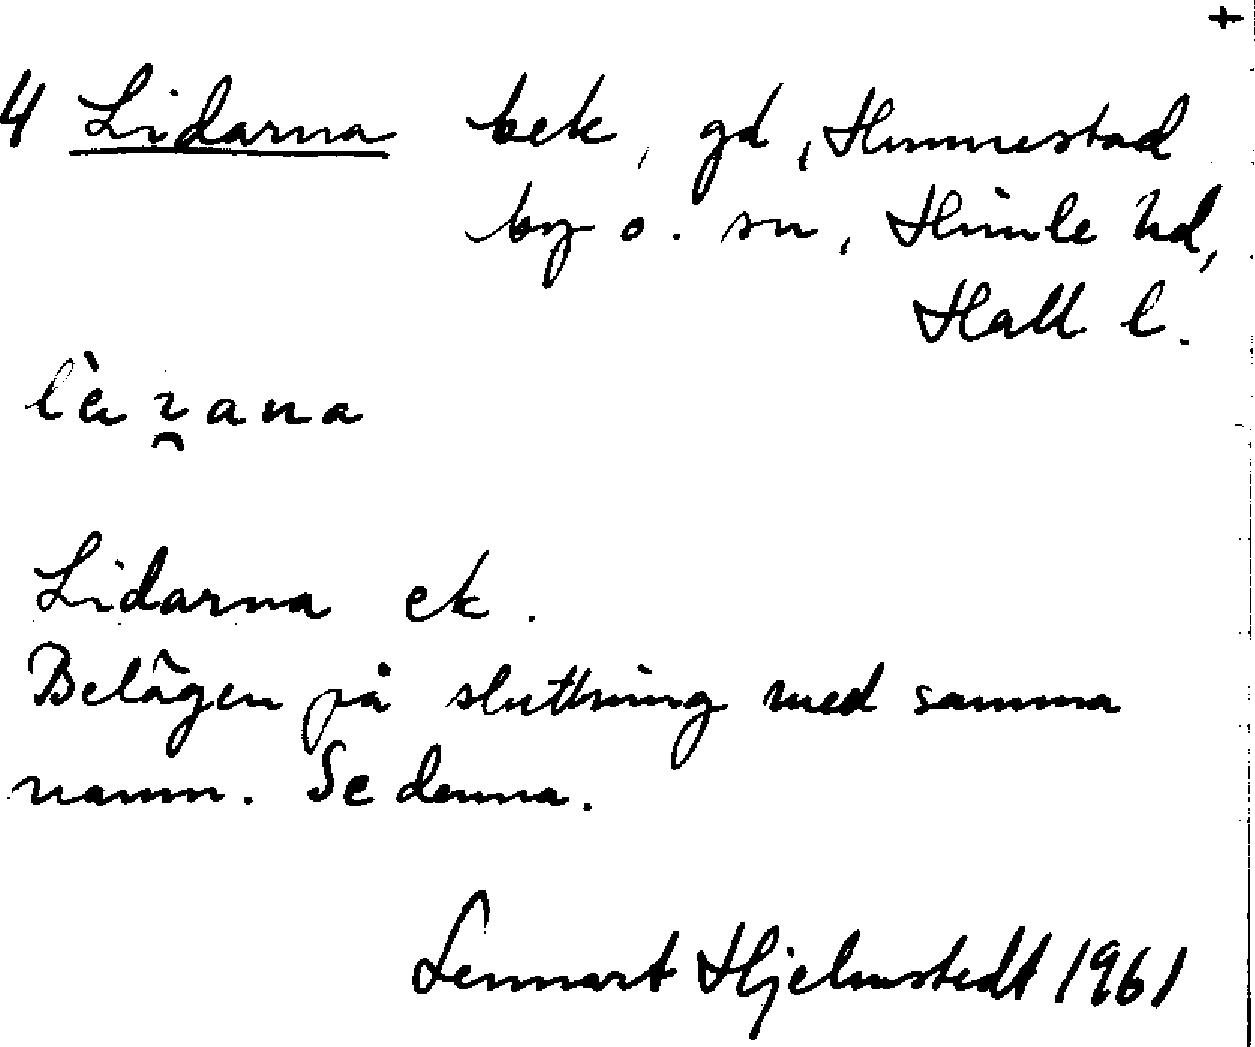 +
4 Lidarna bek, gd, Hunnestad
by o. sn, Himle hd,
Hall l.
Lidarna ek.
Belägen på sluttning med samma
namn. Se denna.
Lennart Hjelmstedt 1961